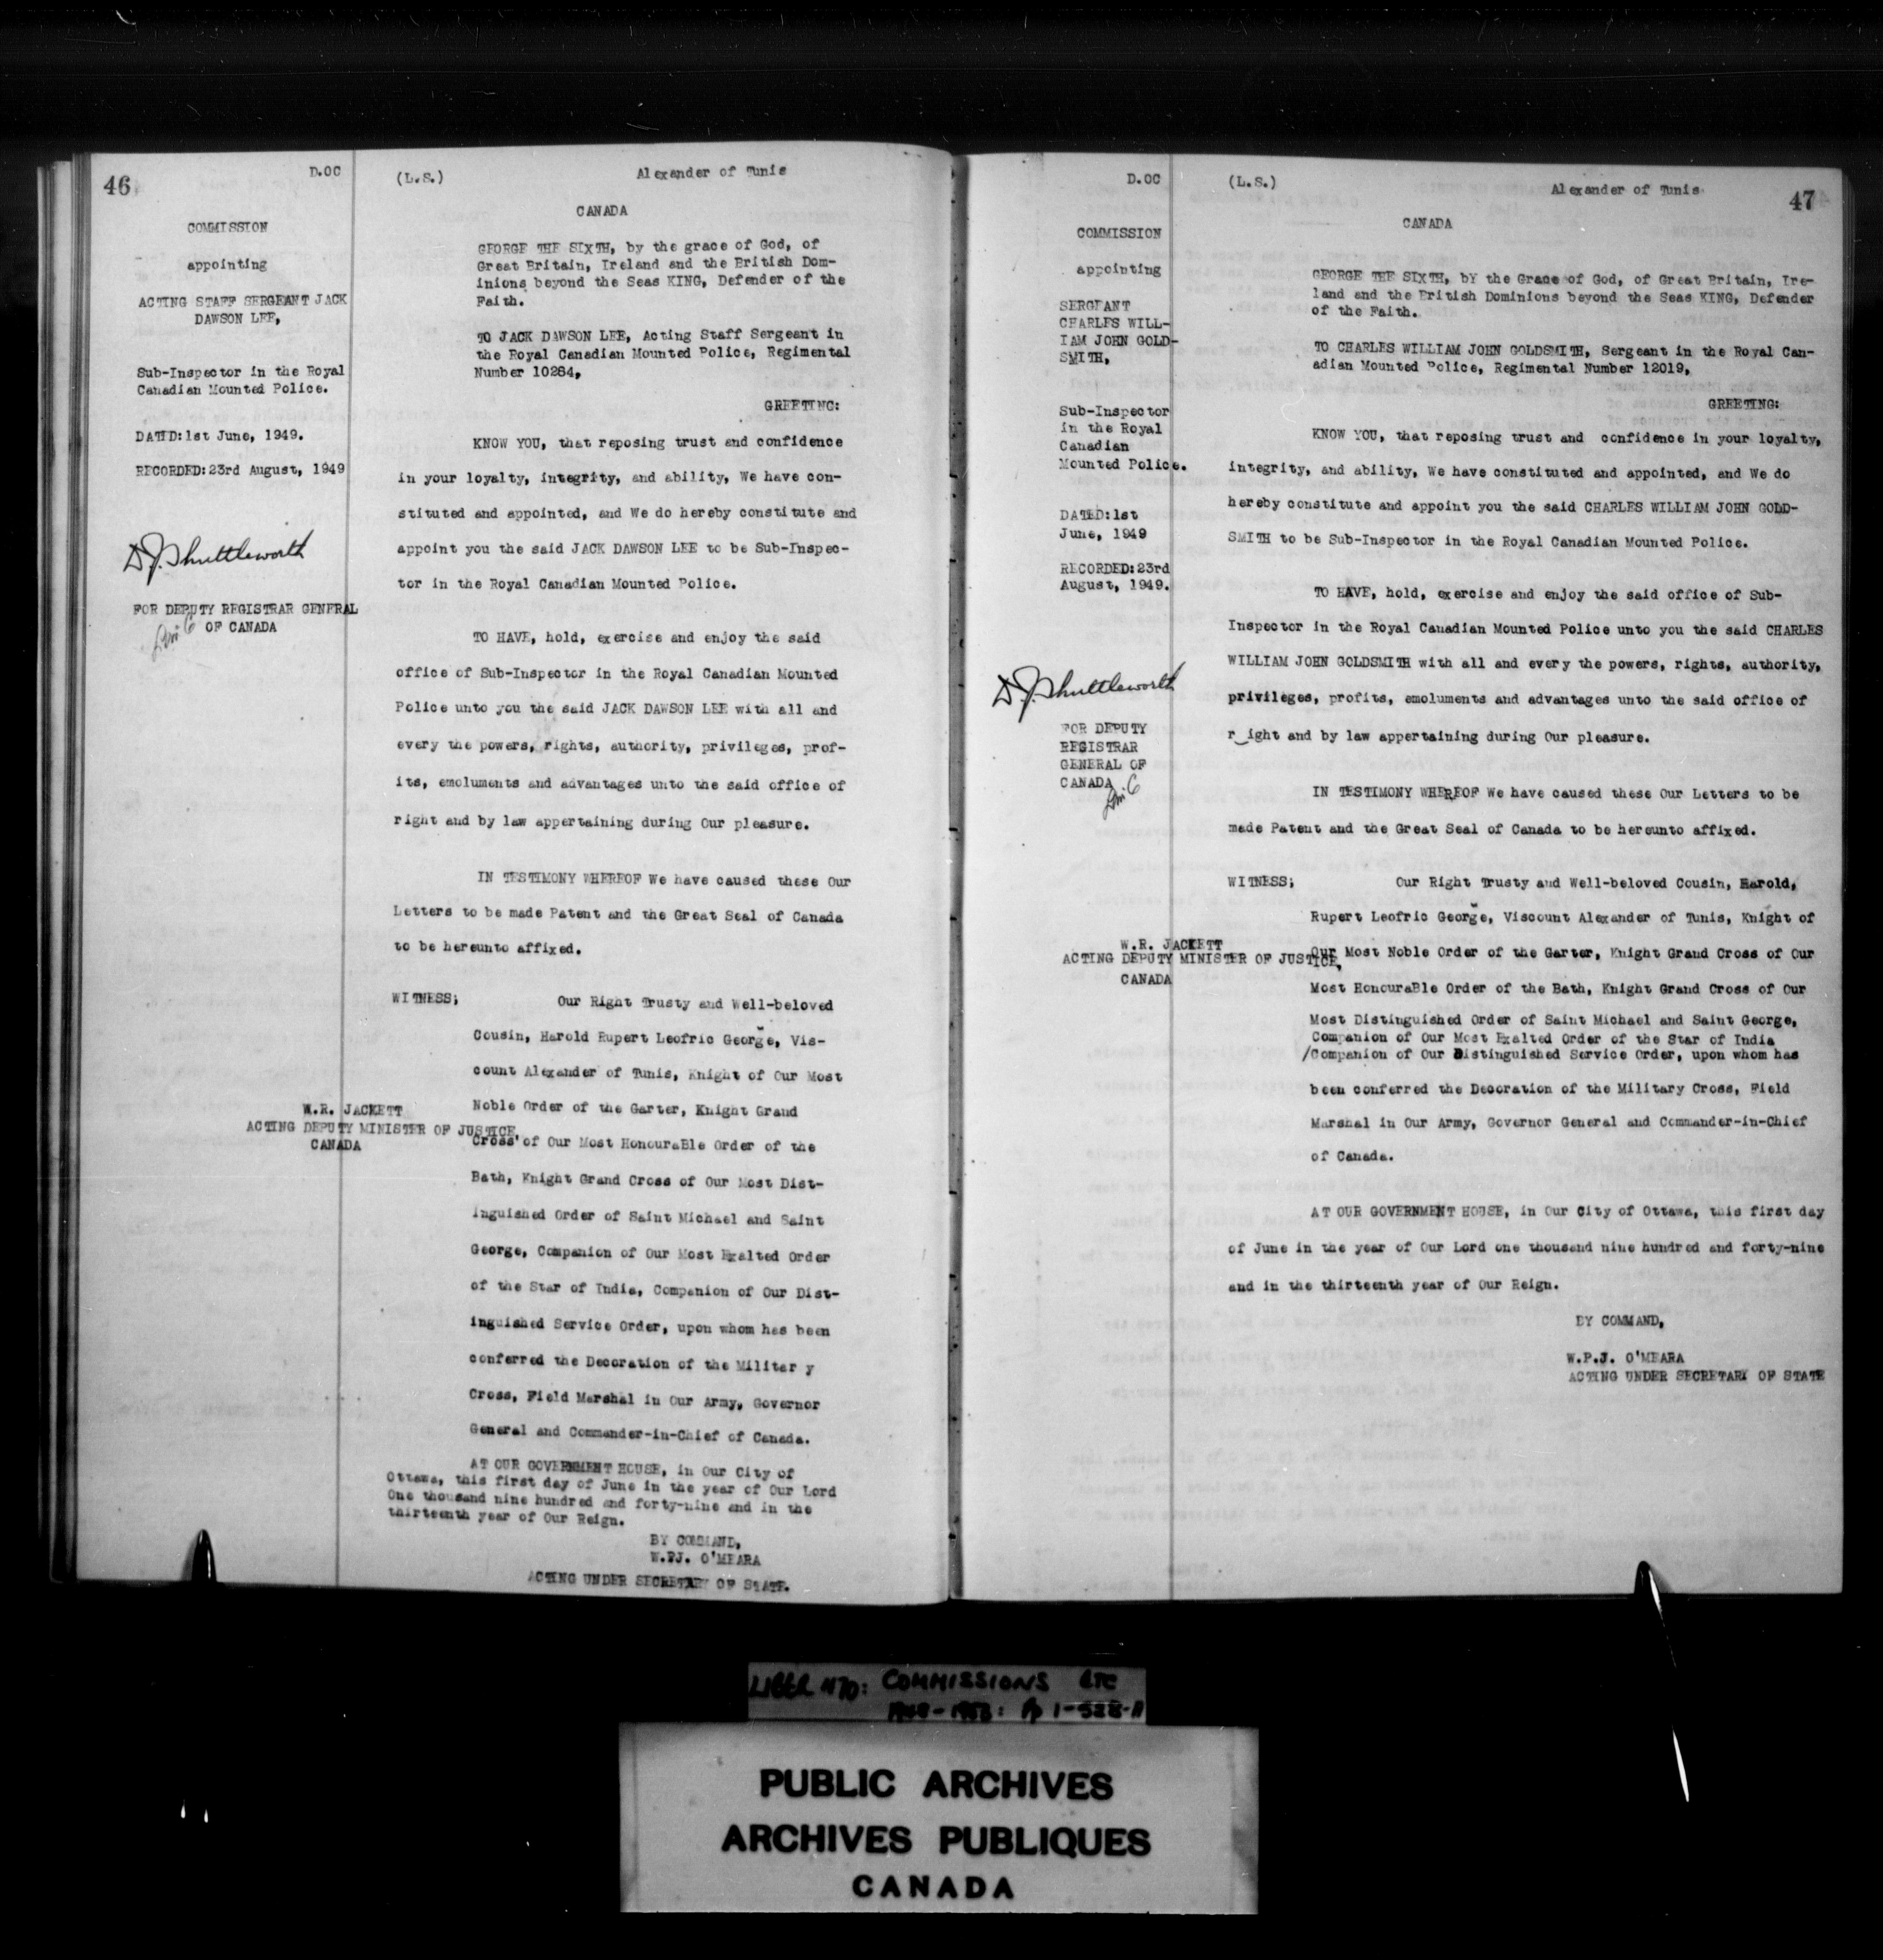 46
D.OC
(L.S.)
Alexander of Tunis
CANADA
COMMISSION
appointing
ACTING STAFF SERGEANT JACK
DAWSON LEE,
Sub-Inspector in the Royal
Canadian Mounted Police.
DATED:1st June, 1949.
RECORDED:23rd August, 1949
D.J. Shuttleworth
FOR DEPUTY REGISTRAR GENERAL
OF CANADA
GEORGE THE SIXTH, by the grace of God, of
Great Britain, Ireland and the British Dom-
inions beyond the Seas KING, Defender of the
Faith.
TO JACK DAWSON LEE, Acting Staff Sergeant in
the Royal Canadian Mounted Police, Regimental
Number 10284,
GREETING:
KNOW YOU, that reposing trust and confidence
in your loyalty, integrity, and ability, We have con-
stituted and appointed, and We do hereby constitute and
appoint you the said JACK DAWSON LEE to be Sub-Inspec-
tor in the Royal Canadian Mounted Police.
TO HAVE, hold, exercise and enjoy the said
office of Sub-Inspector in the Royal Canadian Mounted
Police unto you the said JACK DAWSON LEE with all and
every the powers, rights, authority, privileges, prof-
its, emoluments and advantages unto the said office of
right and by law appertaining during Our pleasure.
IN TESTIMONY WHEREOF We have caused these Our
Letters to be made Patent and the Great Seal of Canada
to be hereunto affixed.
WITNESS; Our Right Trusty and Well-beloved
Cousin, Harold Rupert Leofric George, Vis-
count Alexander of Tunis, Knight of Our Most
Noble Order of the Garter, Knight Grand
Cross of Our Most HonouraBle Order of the
Bath, Knight Grand Cross of Our Most Dist-
inguished Order of Saint Michael and Saint
George, Companion of Our Most Exalted Order
of the Star of India, Companion of Our Dist-
inguished Service Order, upon whom has been
conferred the Decoration of the Militar y
Cross, Field Marshal in Our Army, Governor
General and Commander-in-Chief of Canada.
W.R. JACKETT
ACTING DEPUTY MINISTER OF JUSTICE,
CANADA
AT OUR GOVERNMENT HOUSE, in Our City of
Ottawa, this first day of June in the year of Our Lord
One thousand nine hundred and forty-nine and in the
thirteenth year of Our Reign.
BY COMMAND,
W.P.J. O'MEARA
ACTING UNDER SECRETARY OF STATE.
D.OC
(L.S.)
Alexander of Tunis
47
CANADA
COMMISSION
appointing
SERGEANT
CHARLES WILL-
IAM JOHN GOLD-
SMITH,
Sub-Inspector
in the Royal
Canadian
Mounted Police.
DATED:1st
June, 1949
RECORDED:23rd
August, 1949.
D.J. Shuttleworth
FOR DEPUTY
REGISTRAR
GENERAL OF
CANADA
GEORGE THE SIXTH, bY the Grace of God, of Great Britain, Ire-
land and the British Dominions beyond the Seas KING, Defender
of the Faith.
TO CHARLES WILLIAM JOHN GOLDSMITH, Sergeant in the Royal Can-
adian Mounted Police, Regimental Number 12019,
GREETING:
KNOW YOU, that reposing trust and confidence in your loyalty,
integrity, and ability, We have constituted and appointed, and We do
hereby constitute and appoint you the said CHARLES WILLIAM JOHN GOLD-
SMITH to be Sub-Inspector in the Royal Canadian Mounted Police.
TO HAVE, hold, exercise and enjoy the said office of Sub-
Inspector in the Royal Canadian Mounted Police unto you the said CHARLES
WILLIAM JOHN GOLDSMITH with all and every the powers, rights, authority,
privileges, profits, emoluments and advantages unto the said office of
r ight and by law appertaining during Our pleasure.
IN TESTIMONY WHEREOF We have caused these Our Letters to be
made Patent and the Great Seal of Canada to be hereunto affixed.
WITNESS; Our Right Trusty and Well-beloved Cousin, Harold,
Rupert Leofric George, Viscount Alexander of Tunis, Knight of
Our Most Noble Order of the Garter, Knight Grand Cross of Our
Most HonouraBle Order of the Bath, Knight Grand Cross of Our
Most Distinguished Order of Saint Michael and Saint George,
Companion of Our Most Exalted Order of the Star of India
/Companion of Our Distinguished Service Order, upon whom has
been conferred the Decoration of the Military Cross, Field
Marshal in Our Army, Governor General and Commander-in-Chief
of Canada.
W.R. JACKETT
ACTING DEPUTY MINISTER OF JUSTICE,
CANADA
AT OUR GOVERNMENT HOUSE, in Our City of Ottawa, this first day
of June in the year of Our Lord one thousand nine hundred and forty-nine
and in the thirteenth year of Our Reign.
BY COMMAND,
W.P.J. O'MEARA
ACTING UNDER SECRETARY OF STATE
LIBER 470: COMMISSIONS ETC
PUBLIC ARCHIVES
ARCHIVES PUBLIQUES
CANADA